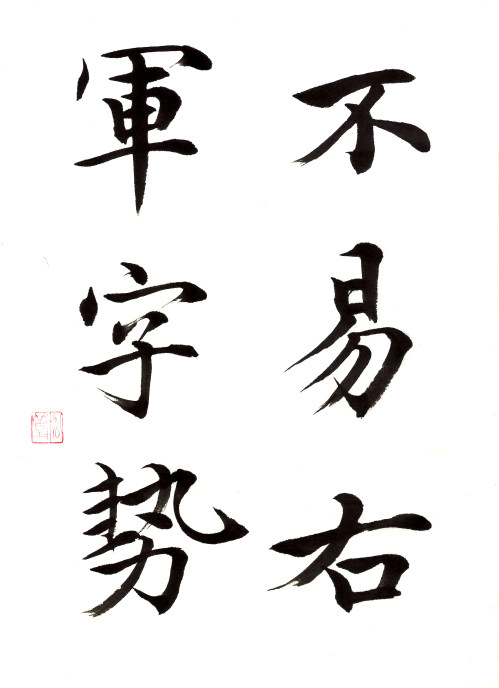 不易右
軍字勢